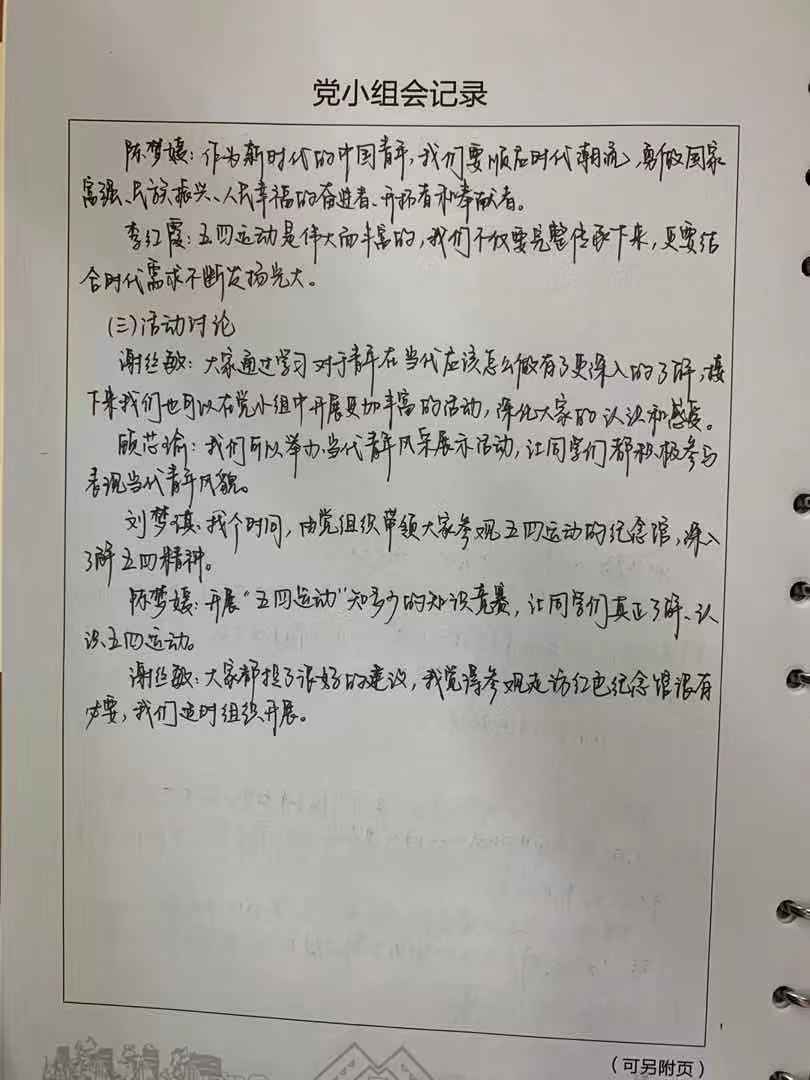 党小组会记录
陈梦媛：作为新时代的中国青年，我们要顺应时代潮流，勇做国家
富强、民族振兴、人民幸福的奋进者、开拓者和奉献者。
李红霞：五四运动是伟大而丰富的，我们不仅要完整传承下来，更要结
合时代需求不断发扬光大。
（三）活动讨论
谢丝敏：大家通过学习对于青年在当代应该怎么做有了更深入的了解，接
下来我们也可以在党小组中开展更加丰富的活动，深化大家的认识和感受。
顾芯瑜：我们可以举办当代青年风采展示活动，让同学们都积极参与
表现当代青年风貌。
刘梦琪：找个时间，由党组织带领大家参观五四运动的纪念馆，深入
了解五四精神。
陈梦媛：开展“五四运动”知多少的知识竞赛，让同学们真正了解、认
识五四运动。
谢丝敏：大家都提了很好的建议，我觉得参观走访红色纪念馆很有
必要，我们适时组织开展。
（可另附页）